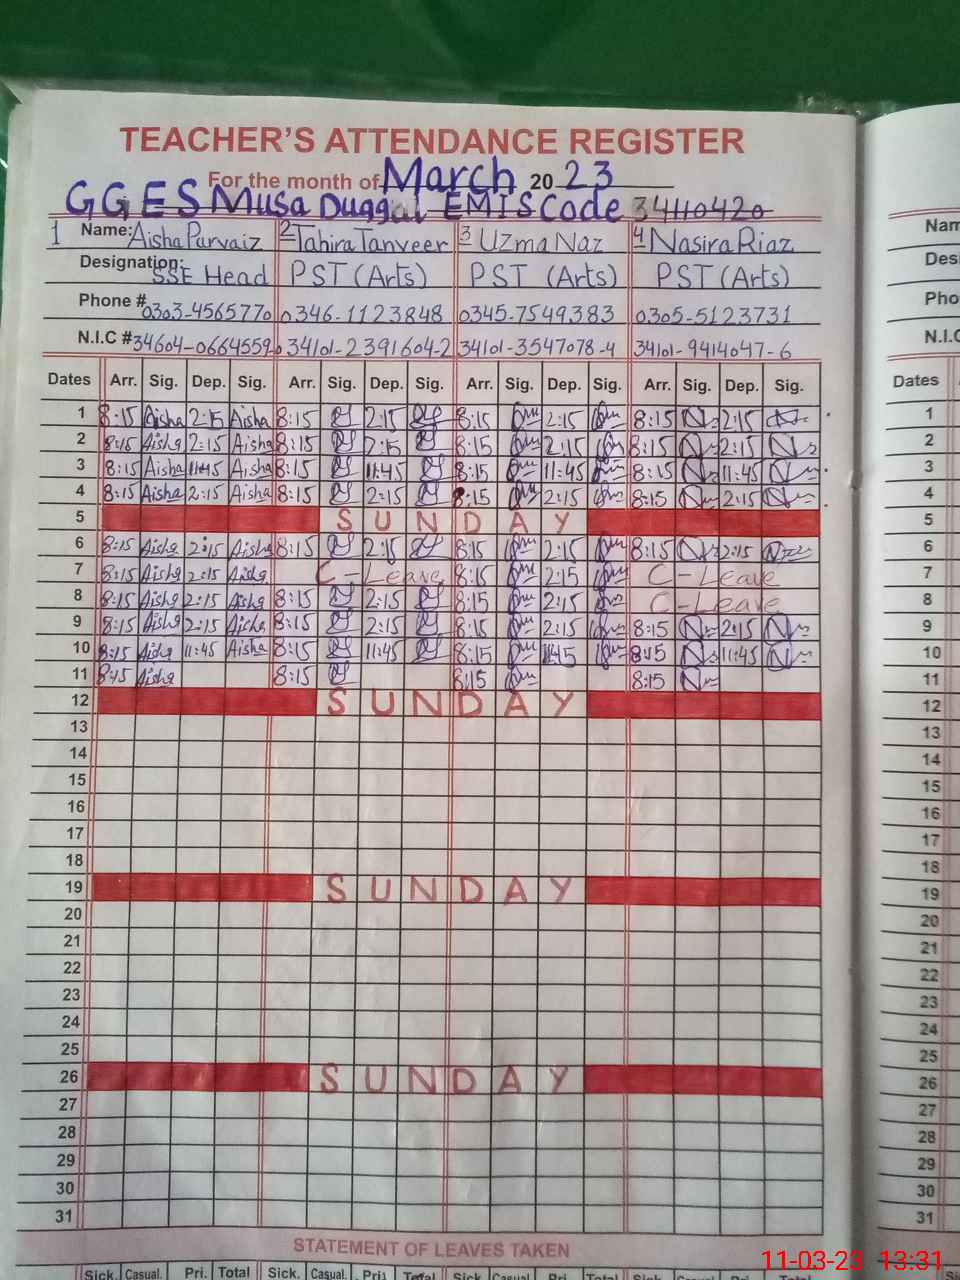 TEACHER'S ATTENDANCE REGISTER
For the month of March 2023
GGES Musa Duggal EMIS Code 34110420
1 Name: Aisha Parvaiz 2 Tahira Tanveer 3 Uzma Naz 4 Nasira Riaz Nam
Designation: SSE Head PST (Arts) PST (Arts) PST (Arts) Des
Phone # 0303-4565770 0346-1123848 0345-7549383 0305-5123731 Pho
N.I.C # 34604-0664559-0 34101-2391604-2 34101-3547078-4 34101-9414047-6 N.I.C
Dates Arr. Sig. Dep. Sig. Arr. Sig. Dep. Sig. Arr. Sig. Dep. Sig. Arr. Sig. Dep. Sig. Dates
1 8:15 Aisha 2:15 Aisha 8:15 2:15 8:15 2:15 8:15 2:15 1
2 8:15 Aisha 2:15 Aisha 8:15 2:15 8:15 2:15 8:15 2:15 2
3 8:15 Aisha 11:45 Aisha 8:15 11:45 8:15 11:45 8:15 11:45 3
4 8:15 Aisha 2:15 Aisha 8:15 2:15 8:15 2:15 8:15 2:15 4
5 SUNDAY 5
6 8:15 Aisha 2:15 Aisha 8:15 2:15 8:15 2:15 8:15 2:15 6
7 8:15 Aisha 2:15 Aisha C-Leave 8:15 2:15 C-Leave 7
8 8:15 Aisha 2:15 Aisha 8:15 2:15 8:15 2:15 C-Leave 8
9 8:15 Aisha 2:15 Aisha 8:15 2:15 8:15 2:15 8:15 2:15 9
10 8:15 Aisha 11:45 Aisha 8:15 11:45 8:15 8:15 11:45 10
11 8:15 Aisha 8:15 8:15 8:15 11
12 SUNDAY 12
13 13
14 14
15 15
16 16
17 17
18 18
19 SUNDAY 19
20 20
21 21
22 22
23 23
24 24
25 25
26 SUNDAY 26
27 27
28 28
29 29
30 30
31 31
STATEMENT OF LEAVES TAKEN
11-03-23 13:31
Sick. Casual. Pri. Total Sick. Casual. Pri. Total Sick. Casual. Pri. Total Sick. Casual. Pri. Total